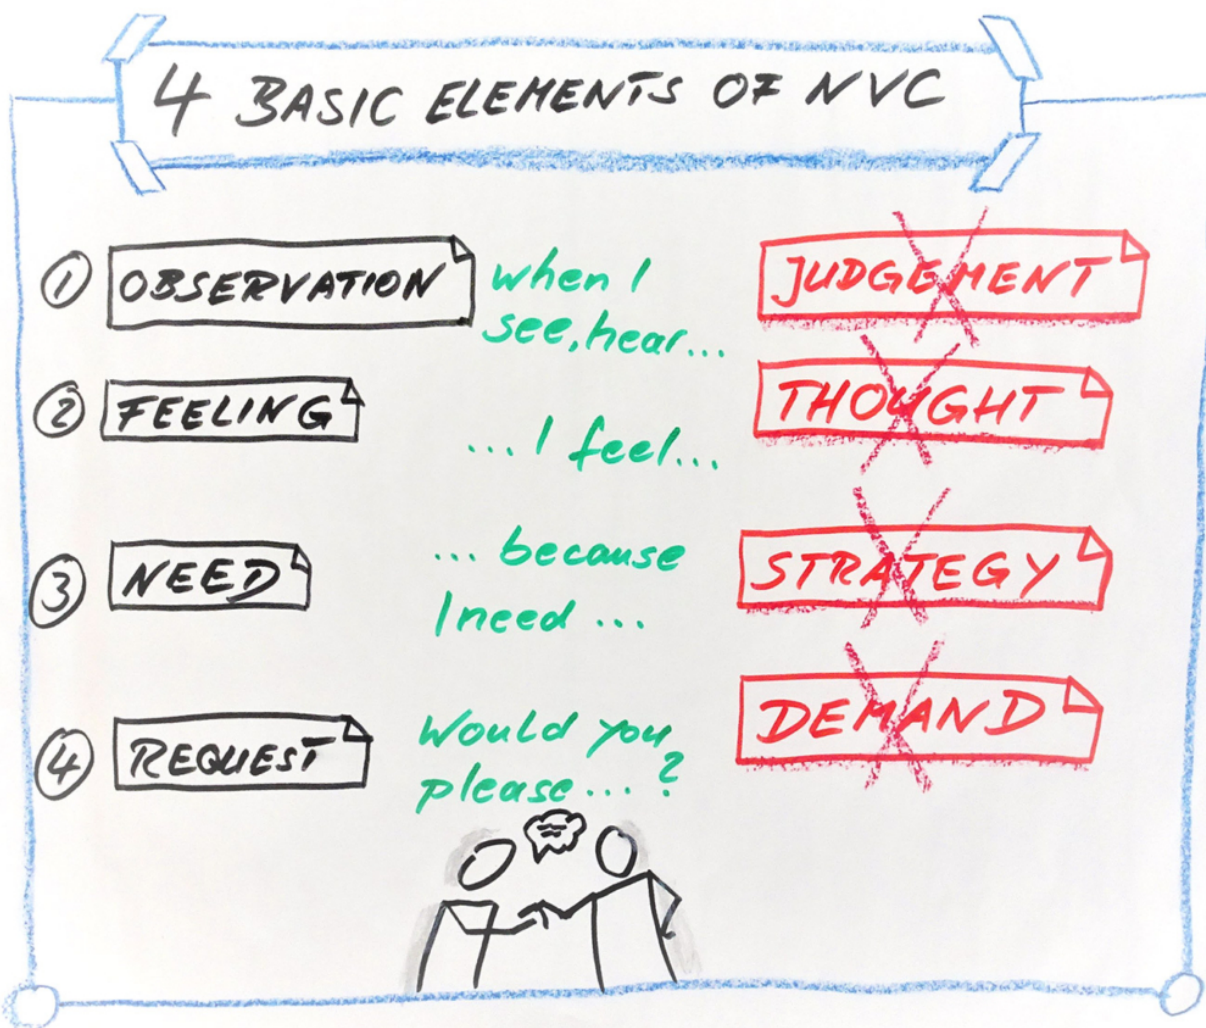 4 BASIC ELEMENTS OF NVC
1 OBSERVATION
when I
see, hear...
JUDGEMENT
2 FEELING
... I feel...
THOUGHT
3 NEED
... because
I need ...
STRATEGY
4 REQUEST
Would you
please... ?
DEMAND